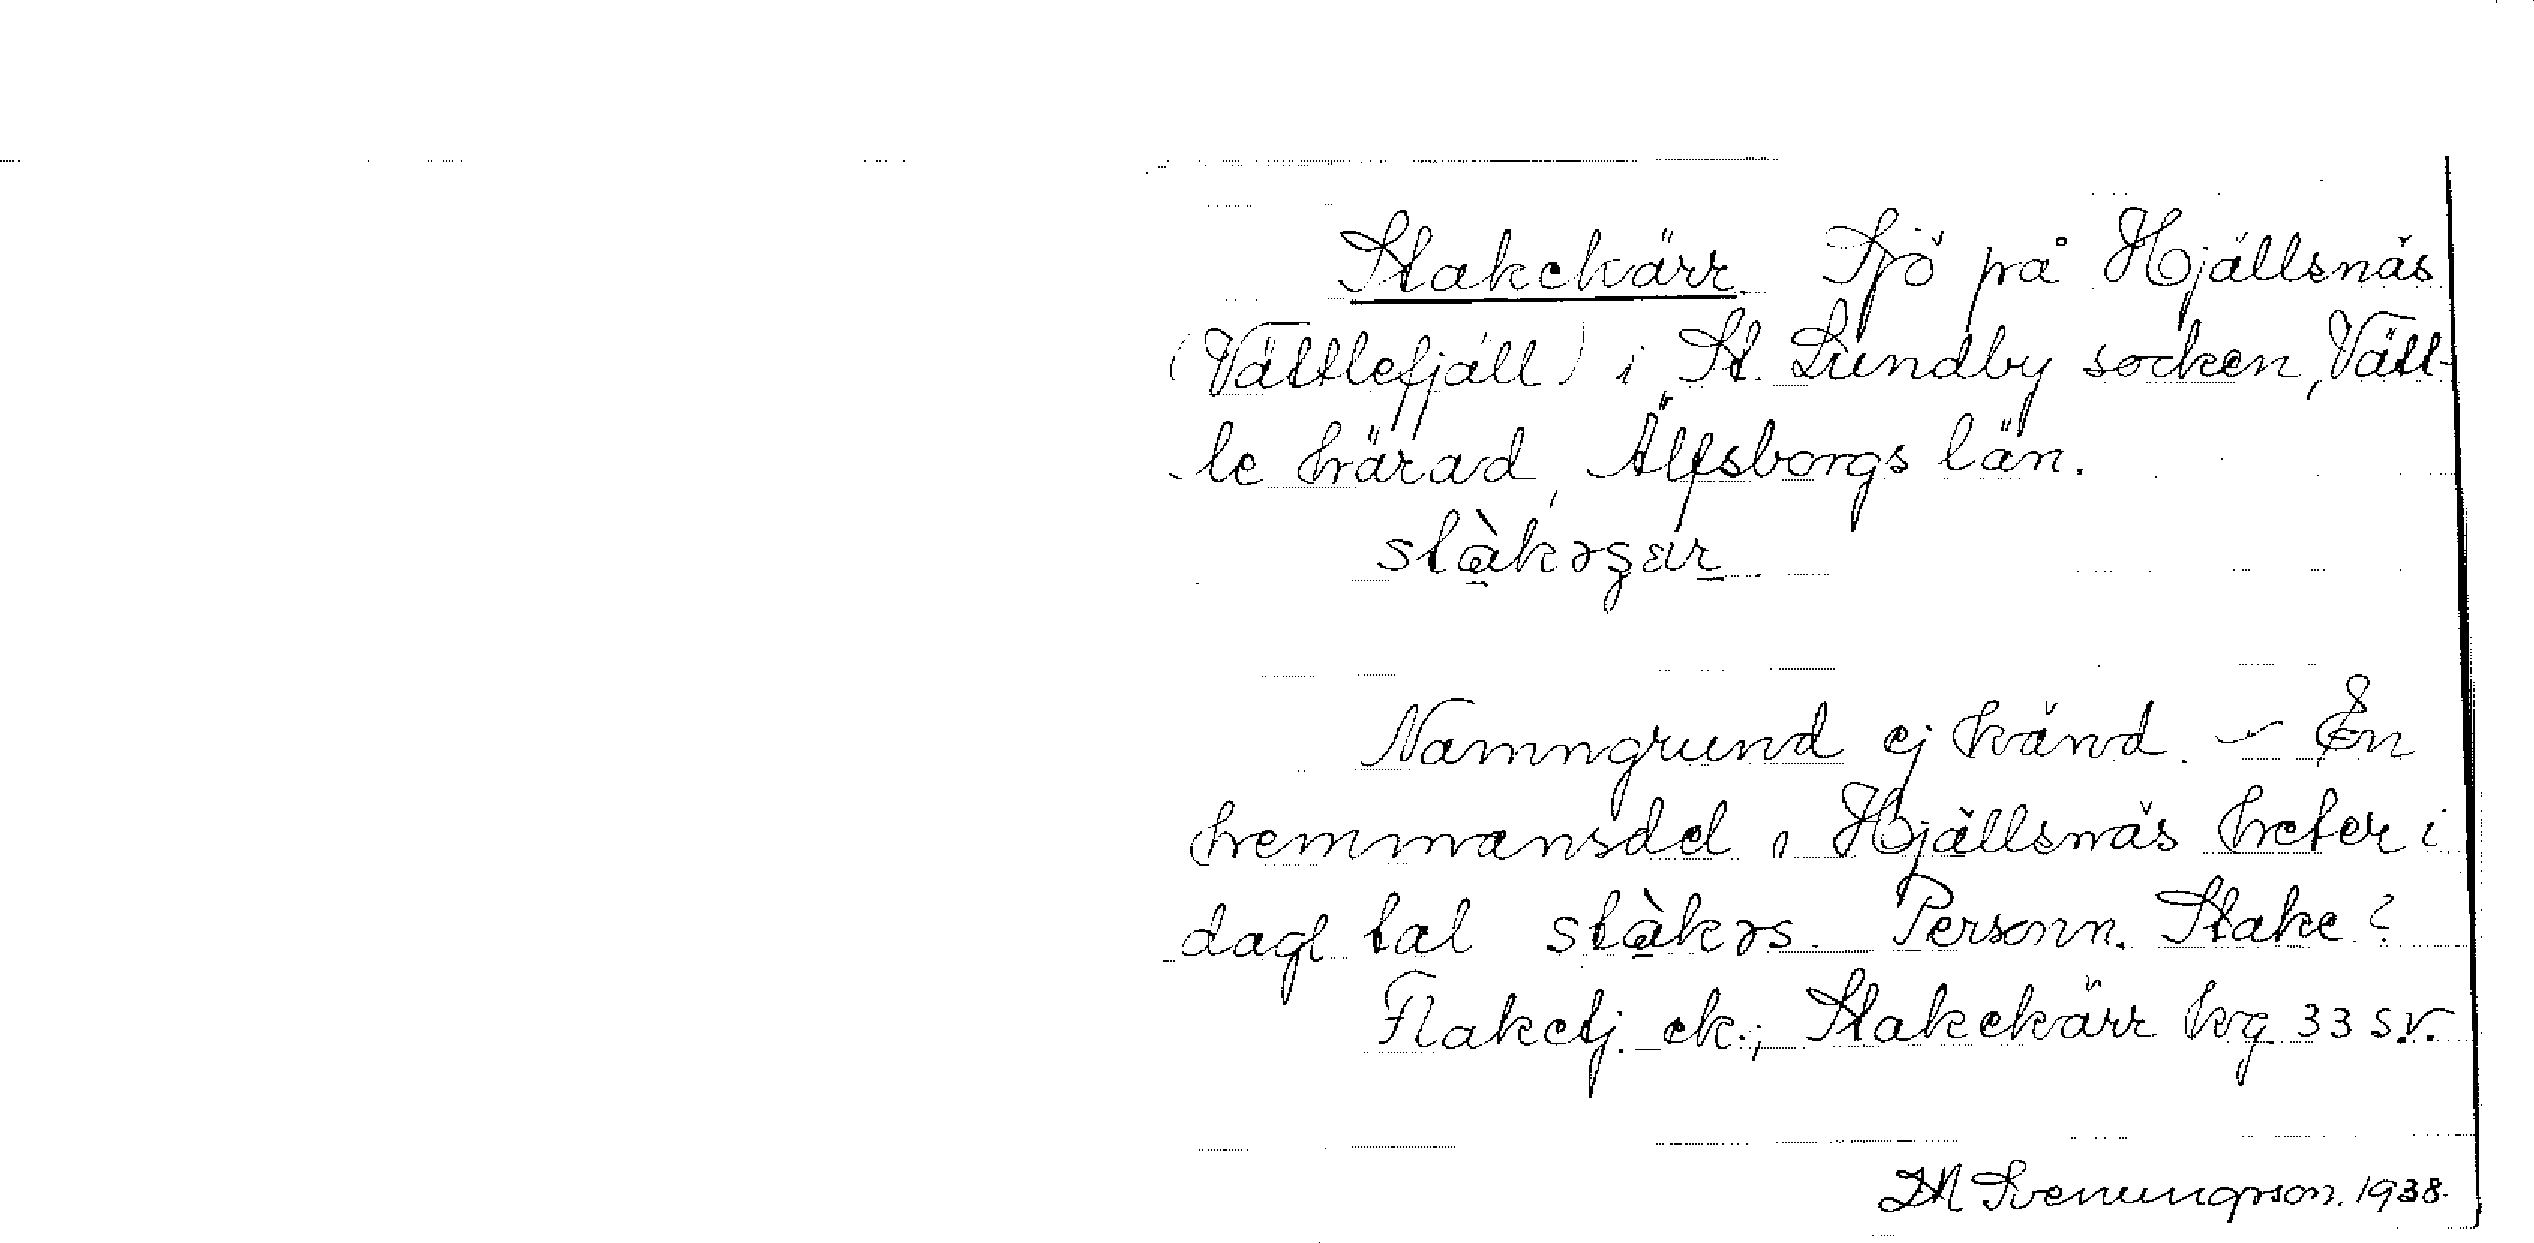 Stakekärr Sjö på Hjällsnäs
(Vättlefjäll) i St. Lundby socken, Vätt-
le härad, Älfsborgs län.
stàkəʂær
Namngrund ej känd. – En
hemmansdel i Hjällsnäs heter i
dagl tal stàkəs. Personn. Stake?
Flaketj. ek.; Stakekärr kg 33 sv.
Svenungsson. 1938.